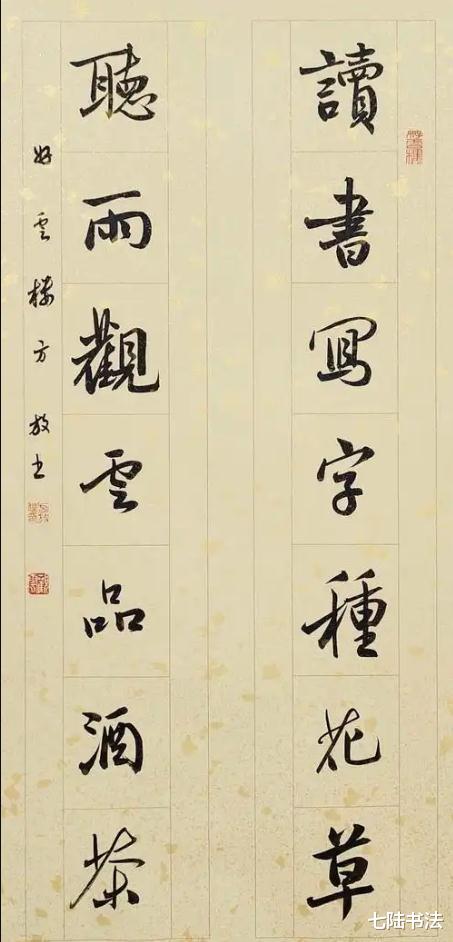 讀書寫字種花草
聽雨觀雲品酒茶
好雲樓方放书
七陆书法